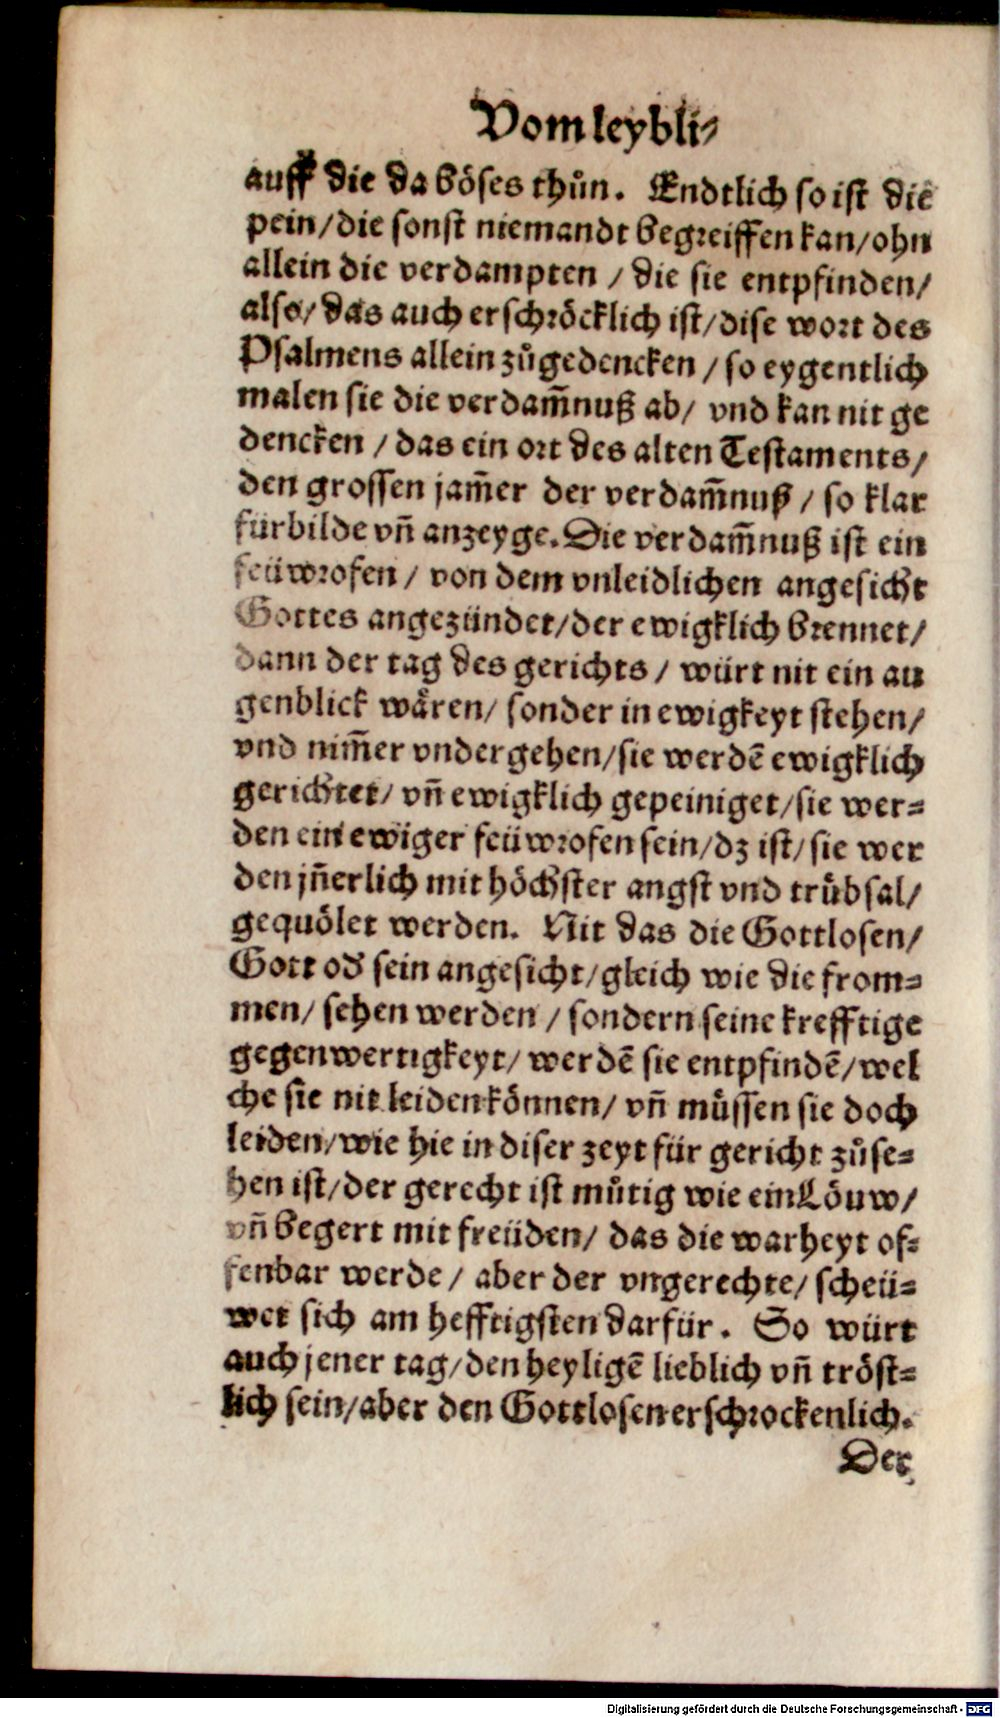 Vom leybli-
auff die da böses thůn. Endtlich so ist die
pein/die sonst niemandt begreiffen kan/ohn
allein die verdampten / die sie entpfinden/
also/ das auch erschröcklich ist/dise wort des
Psalmens allein zůgedencken / so eygentlich
malen sie die verdam̄nuß ab/ vnd kan nit ge
dencken / das ein ort des alten Testaments/
den grossen jam̄er der verdam̄nuß / so klar
fürbilde vn̄ anzeyge. Die verdam̄nuß ist ein
feüwrofen / von dem vnleidlichen angesicht
Gottes angezündet/der ewigklich brennet/
dann der tag des gerichts / würt nit ein au
genblick wåren/ sonder in ewigkeyt stehen/
vnd nim̄er vndergehen/sie werdē ewigklich
gerichtet/ vn̄ ewigklich gepeiniget/sie wer-
den ein ewiger feüwrofen sein/dz ist/sie wer
den jn̄erlich mit höchster angst vnd trůbsal/
gequölet werden. Nit das die Gottlosen/
Gott oď sein angesicht/gleich wie die from-
men/ sehen werden / sondern seine krefftige
gegenwertigkeyt/ werdē sie entpfindē/wel
che sie nit leiden können/ vn̄ můssen sie doch
leiden/wie hie in diser zeyt für gericht zůse-
hen ist/der gerecht ist můtig wie ein Löuw/
vn̄ begert mit freüden/ das die warheyt of-
fenbar werde / aber der vngerechte/ scheü-
wet sich am hefftigsten darfür. So würt
auch jener tag/den heyligē lieblich vn̄ tröst-
lich sein/aber den Gottlosen erschrockenlich.
Der
Digitalisierung gefördert durch die Deutsche Forschungsgemeinschaft - DFG